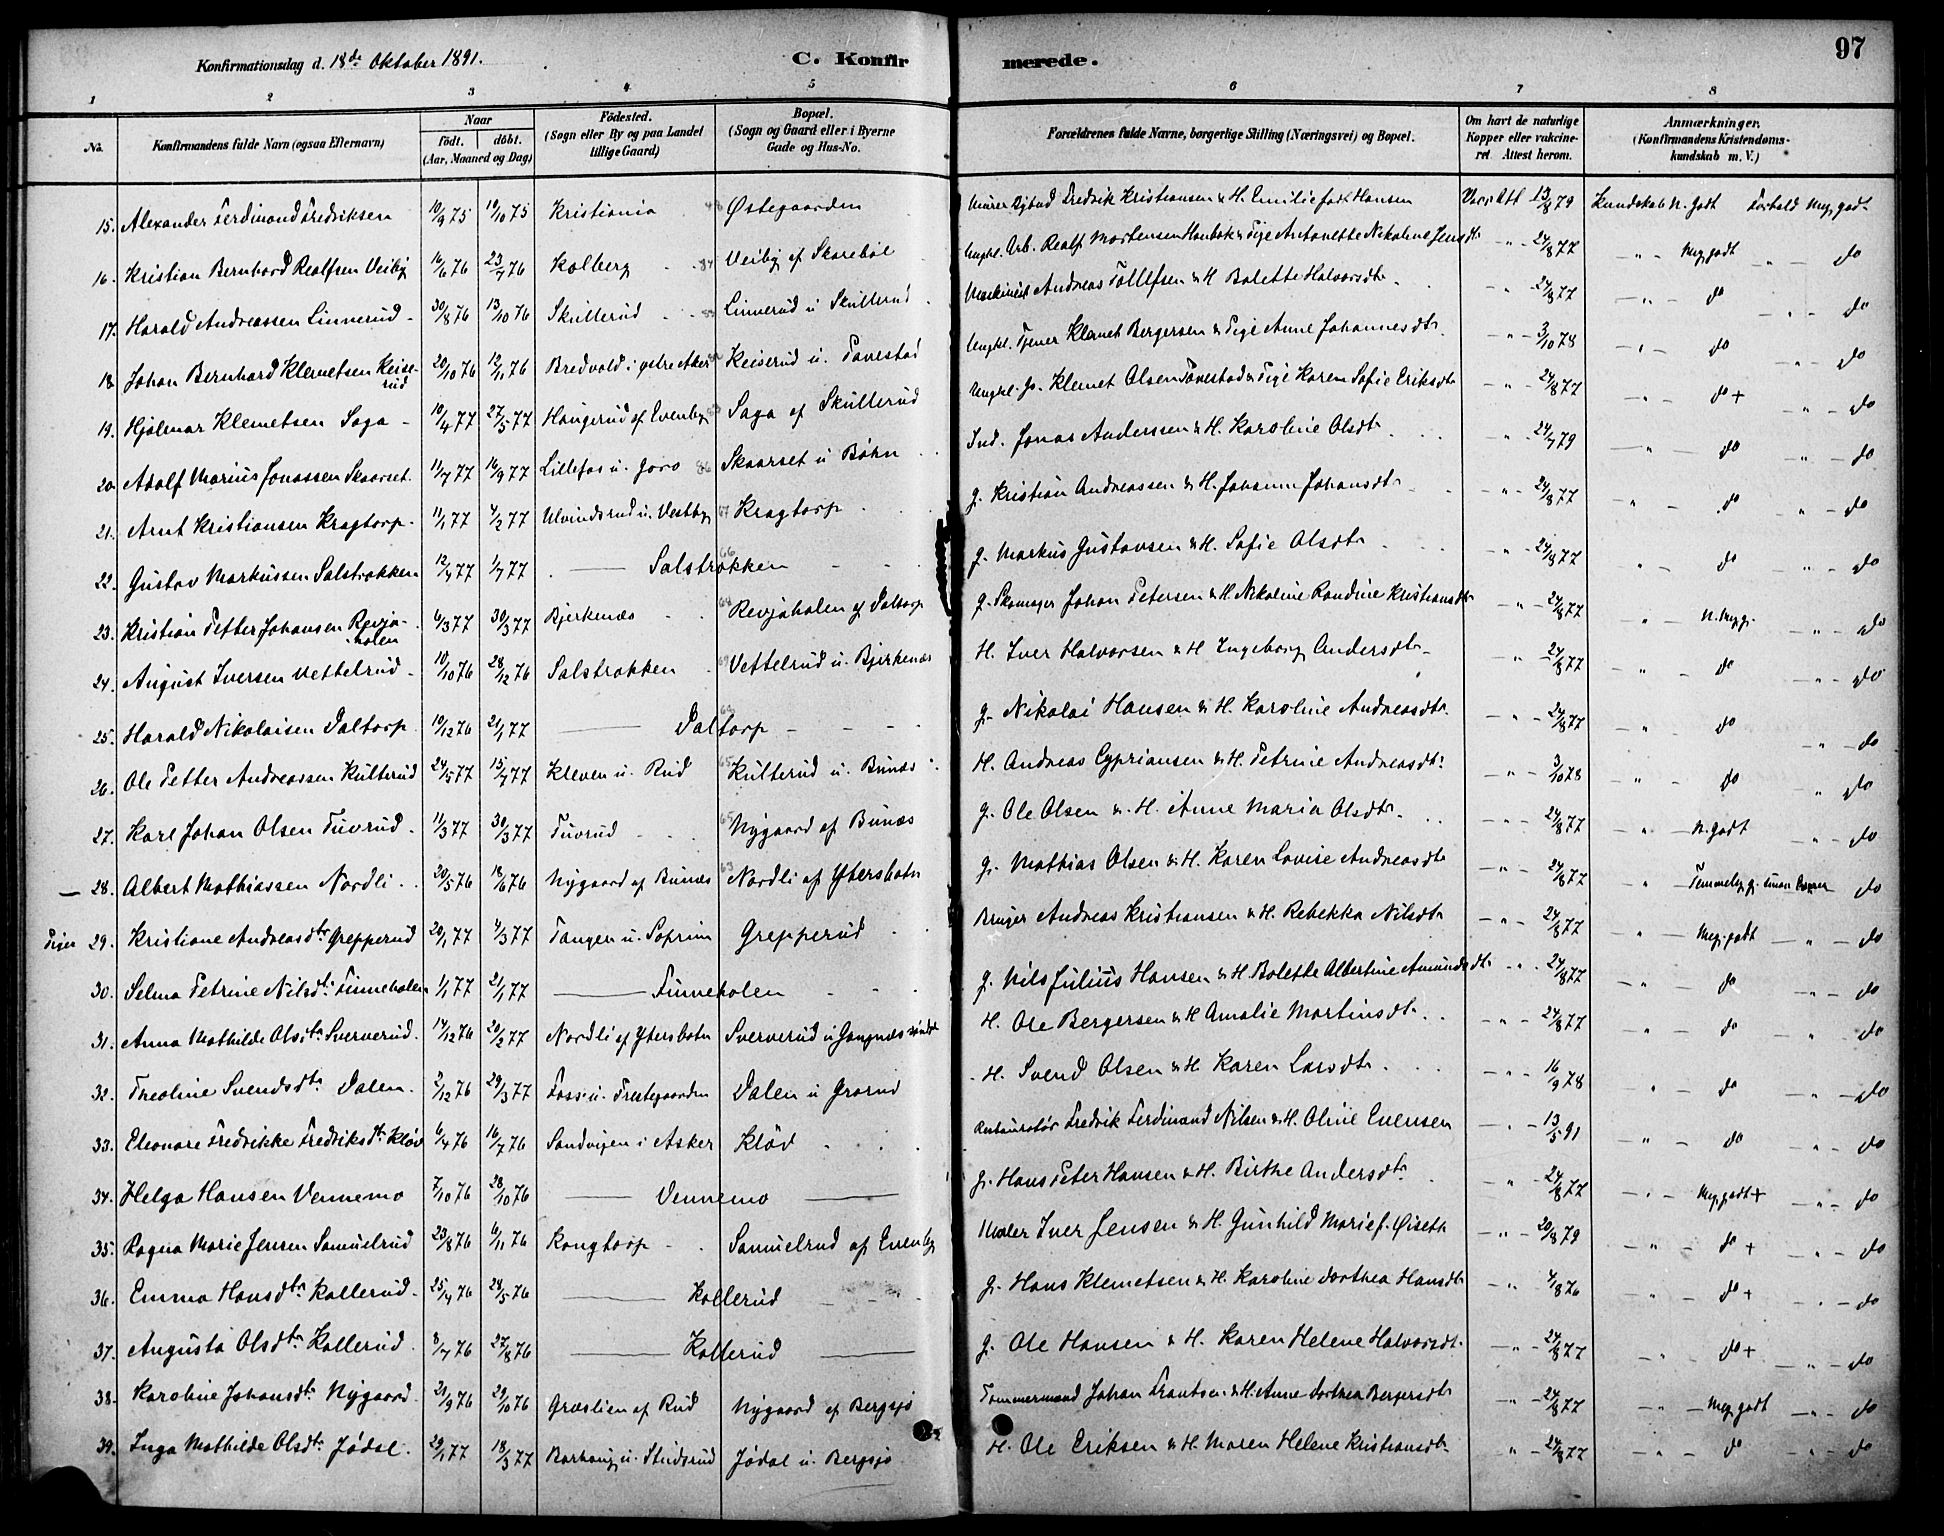 97
Konfirmationsdag d. 18de Oktober 1891. C. Konfirmerede.
1 2 3 4 5 6 7 8
No. Konfirmandens fulde Navn (ogsaa Efternavn) Naar født. døbt. (Aar, Maaned og Dag) Fødested. (Sogn eller By og paa Landet tillige Gaard) Bopæl. (Sogn og Gaard eller i Byerne Gade og Hus-No. Forældrenes fulde Navne, borgerlige Stilling (Næringsvei) og Bopæl. Om havt de naturlige Kopper eller vakcineret Attest herom. Anmærkninger. (Konfirmandens Kristendomskundskab m. V.)
15. Alexander Ferdinand Fredriksen 10/9 75 10/10 75 Kristiania Østegaarden Fredrik Kristiansen & H. Emilie Hansen 13/8 79 Kundskab N. godt Forhold Meg. godt
16. Kristian Bernhard Realfsen Veiby 16/6 76 23/7 76 Kolberg Veiby af Skarebøl Ungkl. Arb. Realf Mortensen & Pige Antonette Nikoline Jensdtr 24/8 77 Meg. godt do
17. Harald Andreassen Linnerud 30/8 76 13/10 76 Skullerud Linnerud u Skullerud Maskinist Andreas Tollefsen & H Bolette Halvorsdtr 24/8 77 do do
18. Johan Bernhard Klemetsen Keiserud 20/10 76 12/11 76 Bredvold i østre Aker Keiserud u. Tavestad Ungkl. Tjener Klemet Bergersen & Pige Anne Johannesdtr 3/10 78 do do
19. Hjalmar Klemetsen Saga 10/4 77 27/5 77 Haugerud af Evenby Saga af Skullerud Ungkl. Klemet Olsen Tavestad & Pige Karen Sofie Eriksdtr 24/8 77 do + do
20. Adolf Marius Jonassen Skaarset. 11/7 77 16/9 77 Lillefos u. Skaarset u Bøhn Ind. Jonas Anderssen & H. Karoline Olsdtr 24/7 79 do do
21. Arnt Kristiansen Kragtorp 11/1 77 4/2 77 Ulvindsrud u. Vestby Kragtorp G. Kristian Andreassen & H. Johanne Johansdtr 24/8 77 do do
22. Gustav Markussen Salstrokken 12/4 77 1/7 77 Salstrokken G. Markus Gustavsen & H. Sofie Olsdtr 24/8 77 do do
23. Kristian Petter Johansen Revjaholen 6/3 77 30/3 77 Bjerkenæs Revjaholen af Daltorp G. Skomager Johan Petersen & H Nikoline Randine Kristiansdtr 24/8 77 N. Meg g. do
24. August Iversen Vettelrud 10/10 76 28/12 76 Salstrokken Vettelrud u. Bjerkenæs H. Iver Halvorsen & H Ingeborg Andersdtr 24/8 77 do do
25. Harald Nikolaisen Daltorp 10/12 76 21/1 77 Daltorp G. Nikolai Hansen & H. Karoline Andreasdtr 24/8 77 do do
26. Ole Petter Andreassen Kulterud 24/5 77 15/7 77 Kleven u. Rud Kulterud u. Bunæs H. Andreas Cypriansen & H. Petrine Andreasdtr 3/10 78 do do
27. Karl Johan Olsen Tuvrud 11/3 77 30/3 77 Tuvrud Nygaard af Bunæs G. Ole Olsen & H. Anne Maria Olsdtr 24/8 77 N. godt do
28. Albert Mathiassen Nordli 20/5 76 18/6 76 Nygaard af Bunæs Nordli af Ytersbotn G. Mathias Olsen & H. Karen Lovise Andreasdtr 24/8 77 Temmelig g. do
Piger 29. Kristiane Andreasdtr Grepperud 20/1 77 4/3 77 Tangen u. Soprim Grepperud Bruger Andreas Kristiansen & H. Rebekka Nilsdtr 24/8 77 Meg. godt do
30. Selma Petrine Nilsdtr Finneholen 1/1 77 21/1 77 Finneholen G. Nils Julius Hansen & H. Bolette Albertine Amundsdtr 24/8 77 do do
31. Anna Mathilde Olsdtr Sververud 14/12 76 20/2 77 Nordli af Ytersbotn Sververud u Gangnæs H. Ole Bergersen & H Amalie Martinsdtr 24/8 77 do do
32. Theoline Svendsdtr Dalen 2/12 76 29/3 77 Foss u. Prestegaarden Dalen u Grorud H. Svend Olsen & H. Karen Larsdtr 16/9 78 do do
33. Eleonore Fredrikke Fredriksdtr Kløv 6/4 76 16/7 76 Sandvigen i Asker Kløv Restauratør Fredrik Ferdinand Nilsen & H. Oline Evensen 13/5 91 do do
34. Helga Hansen Vennemo 7/10 76 28/10 76 Vennemo G. Hans Peter Hansen & H. Birthe Andersdtr 24/8 77 Meg. godt + do
35. Ragna Marie Jensen Samuelrud 23/8 76 6/11 76 Kongtorp Samuelrud af Evenby Maler Iver Jensen & H. Gunhild Marie f. Øiseth 20/8 79 do + do
36. Emma Hansdtr Kollerud 25/4 76 28/5 76 Kollerud G. Hans Klemetsen & H. Karoline Dorthea Hansdtr 4/8 76 do + do
37. Augusta Olsdtr Kollerud 8/7 76 27/8 76 Kollerud G. Ole Hansen & H. Karen Helene Halvorsdtr 24/8 77 do + do
38. Karoline Johansdtr Nygaard 21/9 76 29/10 76 Græslien af Rud Nygaard af Bergsjø Tømmermand Johan Frantsen & H. Anne Dorthea Bergersdtr 24/8 77 Meg. godt do
39. Inga Mathilde Olsdtr Jødal 29/1 77 18/3 77 Barhaug u. Studsrud Jødal u. Bergsjø H. Ole Eriksen & H. Maren Helene Kristiansdtr 24/8 77 do do